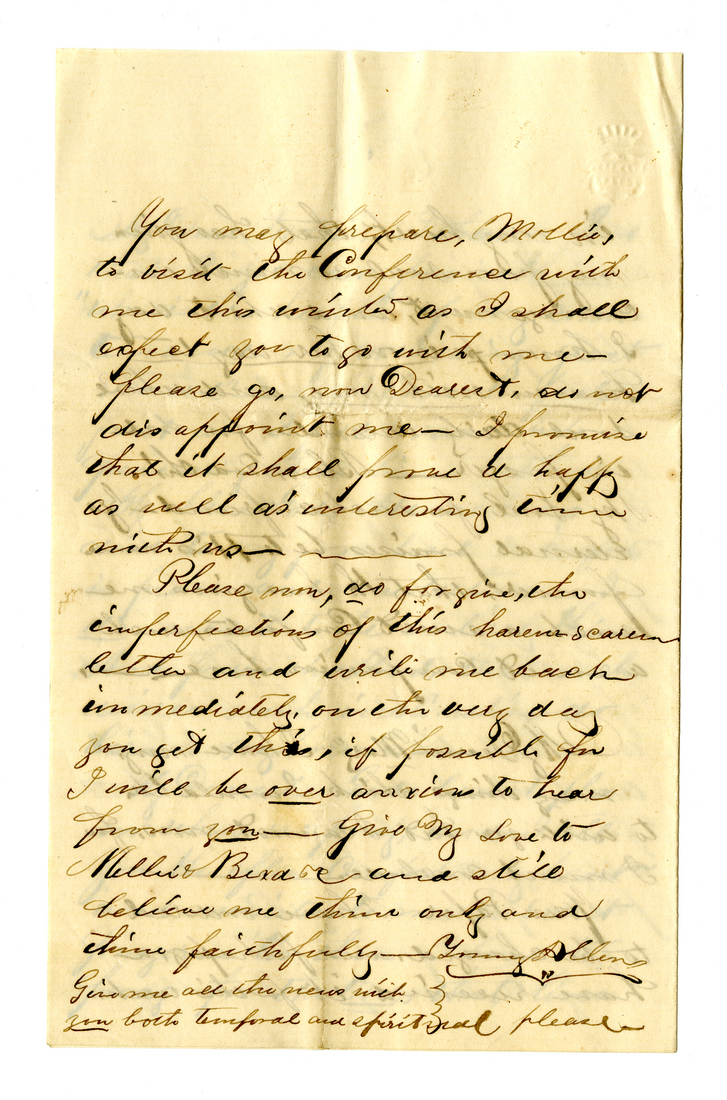 You may prepare, Mollie,
to visit the Conference with
me this winter as I shall
expect you to go with me—
please go, now Dearest, do not
disappoint me— I promise
that it shall prove a happy
as well as interesting time
with us—
Please now, do forgive, the
imperfections of this harem-scarem
letter and write me back
immediately, on the very day
you get this, if possible for
I will be over anxious to hear
from you— Give My Love to
Mellie & and still
believe me thine only and
thine faithfully— Young Allen
Give me all the news with
you both temporal and spiritual please—